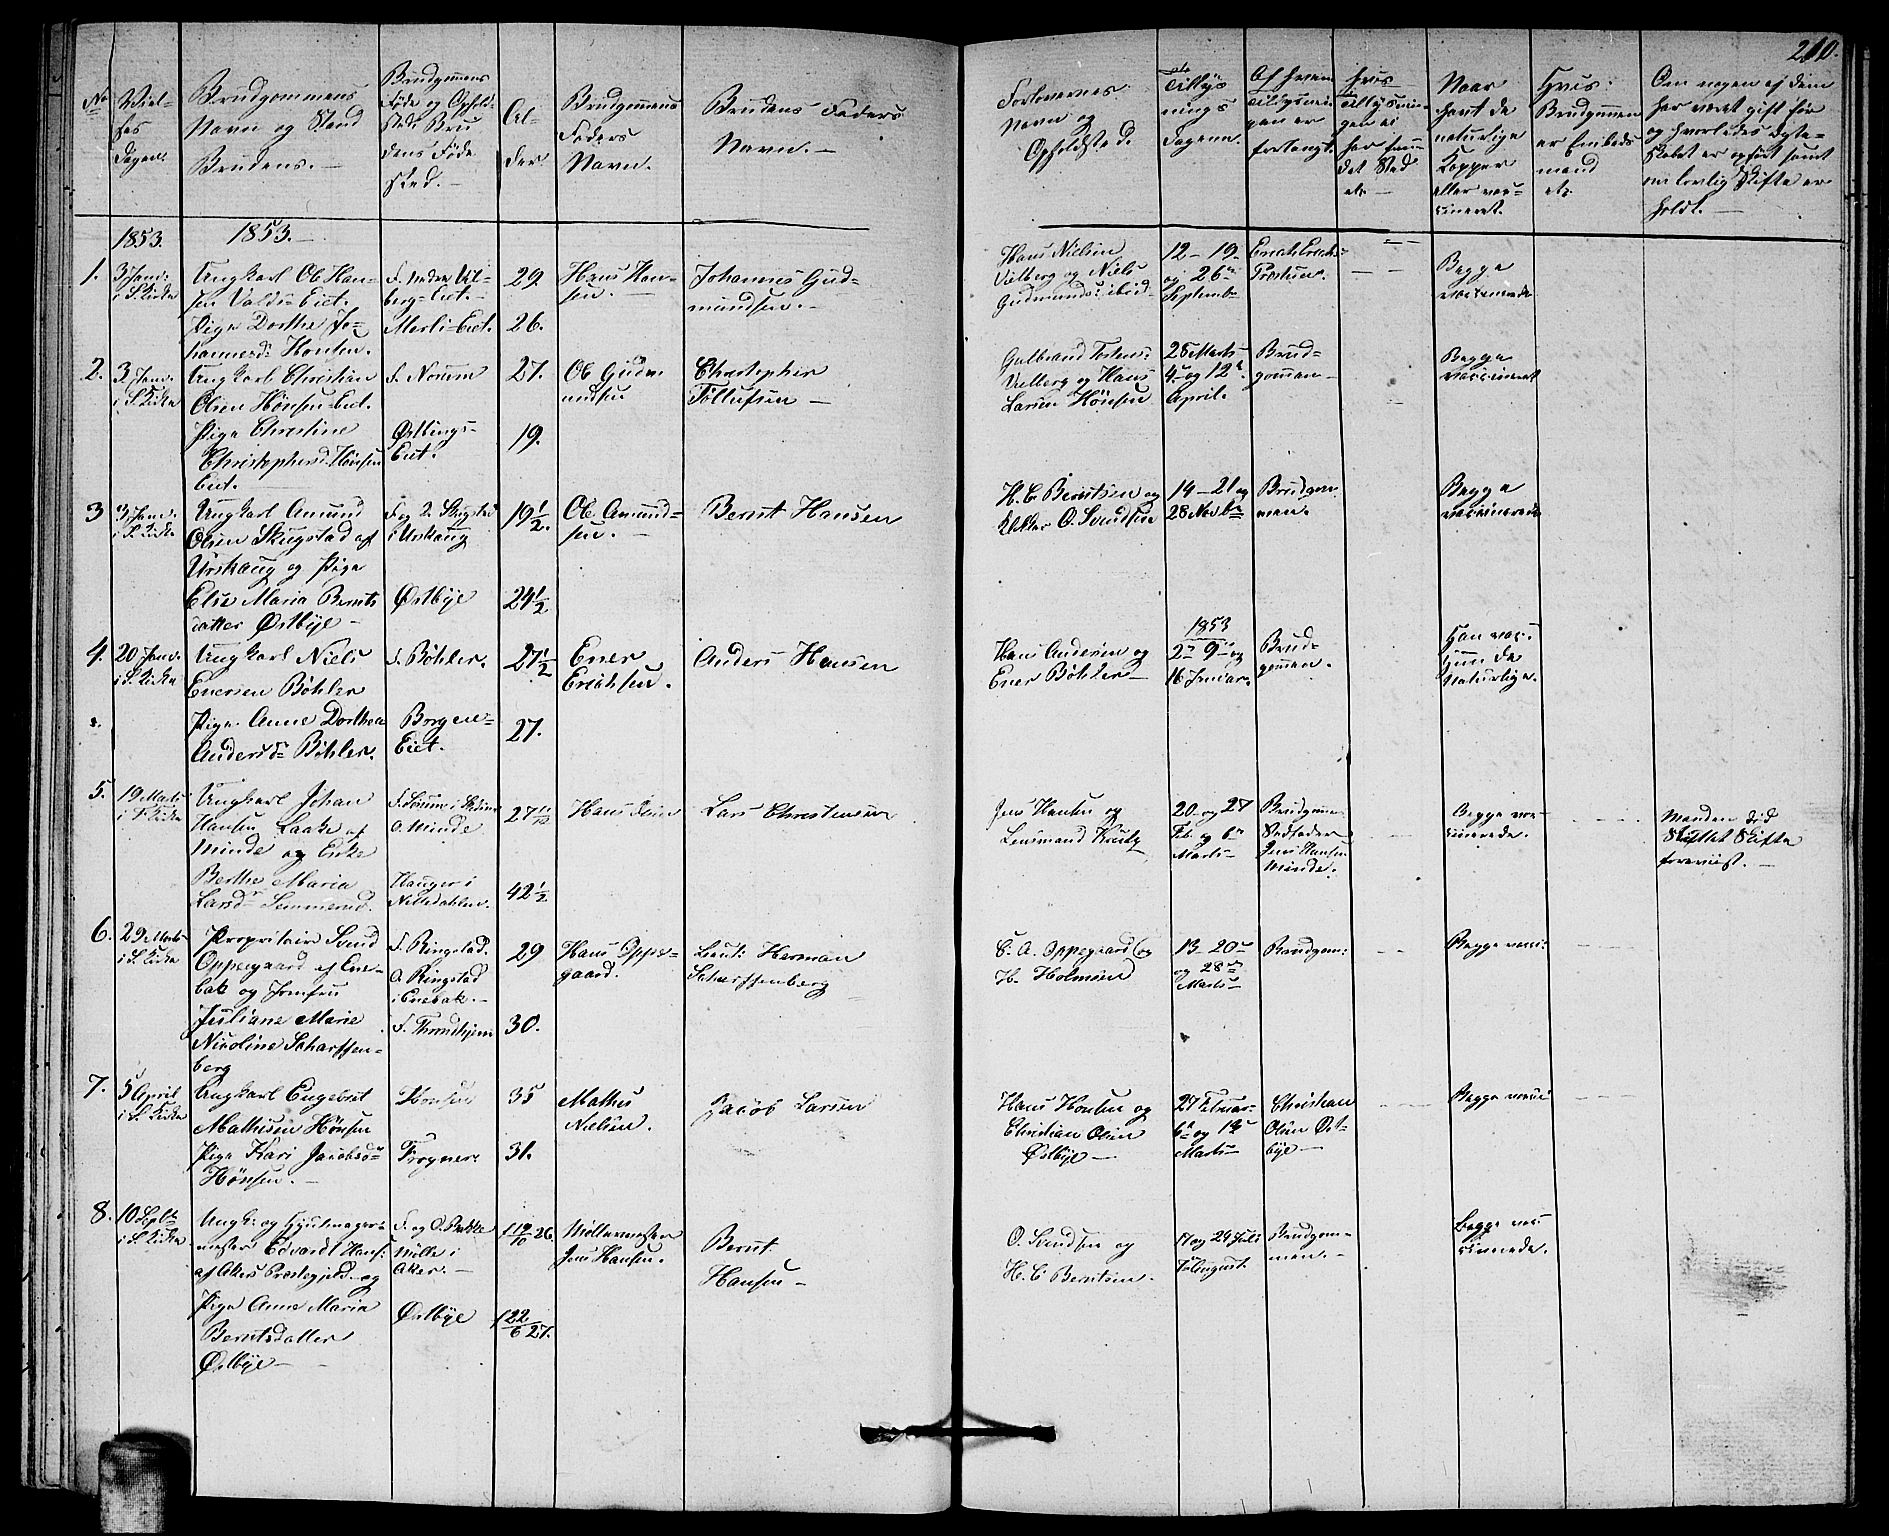 210.
No
Viel-
ses
Dagen.
Brudgommens
Navn og Stand
Brudens. —
Brudgommens
Føde og Ophold-
sted. Bru
dens Føde
sted. —
Al-
der
Brudgomens
Faders
Navn.
Brudens Faders
Navn. —
Forlovernes
Navn og
Opholdsted.
Tillys
nings
Dagene.
Af hvem
Tillysnin
gen er
forlangt.
Hvis
Tillysnin-
gen ei
har fun-
det Sted
etc. —
Naar
havt de
naturlige
Kopper
eller vac-
cineret.
Hvis
Brudgommen
er Embeds
mand
etc.
Om nogen af dem
har været gift før
og hvorledes Ægte-
skabet er ophørt samt
om lovlig Skifte er
holdt. —
1853.
1853. —
1.
3 Janr.
i S. Kirke
Ungkarl Ole Han-
sen Valds Eiet.
Pige Dorthe Jo-
hannesd: Hønsen.
f. nedre Vil-
berg-Eiet. —
Merli-Eiet.
29.
26.
Hans Han-
sen. —
Johannes Gud-
mundsen. —
Hans Nielsen
Vilberg og Niels
Gudmunds: ibid.
12 — 19
og 26de
Septembr
Erich Erichs:
Præstrn.
— —
Begge
vaccinerede
2.
3 Janr.
i S. Kirke
Ungkarl Christian
Olsen Hønsen-Eiet.
Pige Christine
Christophersd: Hønsen
Eiet. —
f. Norum
Østbings-
Eiet.
27.
19.
Ole Gudm
undsen
Christopher
Tollefsen —
Gulbrand Torstens:
Vilberg og Hans
Larsen Hønsen
28 Marts
4de og 12te
April.
Brud-
gommen —
Begge
vaccineret
3
3 Janr.
i S. Kirke
Ungkarl Amund
Olsen Skugstad af
Urskoug og Pige
Elise Maria Bernts
datter Østbye —
F. og O. Skugstad
i Urskoug
Østbye
19 1/2.
24 1/2
Ole Amund-
sen. —
Bernt Hansen
H. C. Berntsen og
Klokker O. Svendsen
14 — 21 og
28 Novbr
Brudgom
men.
Begge
vaccinerede
4.
20 Janr.
i S. Kirke
Ungkarl Niels
Enersen Bøhler
Pige Anne Dorthea
Andersdr Bøhler.
f. Bøhler.
Borgen-
Eiet.
27 1/2
27.
Ener
Erichsen.
Anders Hansen
Hans Andersen og
Ener Bøhler —
1853
2den 9de og
16 Januar.
Brud-
gommen.
Han vac:
Hun de
naturlige.
5.
19 Marts
i F. Kirke
Ungkarl Johan
Hansen Laake af
Minde og Enke
Berthe Maria
Larsd: Semmerud.
O. Minde
Hauger i
Nittedahlen.
42 1/2
Lars Christensen
Jens Hansen og
Lensmand Kruby
20. og 27
Feb. og 6te
Marts —
Brudgom:
Stedfader
Jens Hansen
Minde.
Begge vac-
cinerede.
Manden død
Skiftet Skifte
foreviist. —
6.
29 Marts
i S. Kirke
Proprietair Svend
Oppegaard af Ene-
bak og Jomfru
Juliane Marie
Nicoline Scharffen-
berg
f. Ringstad.
O. Ringstad
i Enebak. —
f. Throndhjem
29
30.
Hans Oppe-
gaard.
Lieut: Herman
Scharffenberg
C. A. Oppegaard og
H. Holmsen
13 — 20de
og 28de
Marts —
Brudgom:
Begge vacci:
7.
5 April
i S. Kirke
Ungkarl Engebret
Mathisen Hønsen
Pige Kari Jacobsdr
Hønsen. —
Hønsen
Frogner.
35
31.
Mathis
Nielsen.
Jacob Larsen
Hans Hønsen og
Christian Olsen
Østbye —
27 Februar
6te og 13de
Marts —
Christian
Olsen Øst-
bye —
Begge vacci
8.
10 Septbr
i S. Kirke
Ungk: og Hjulmager-
mester Edvardt Hans:
af Akers Præstegjeld og
Pige Anne Maria
Berntsdatter
Østbye —
F. og O. Bække
Mølle i
Aker. —
Østbye
f 19/10 26.
f 22/6 27.
Møllermester
Jens Hansen.
Bernt
Hansen —
O. Svendsen og
H. C. Berntsen.
17 og 24 Juli
7 August.
Brudgom-
men. —
Begge vac-
cinerede.